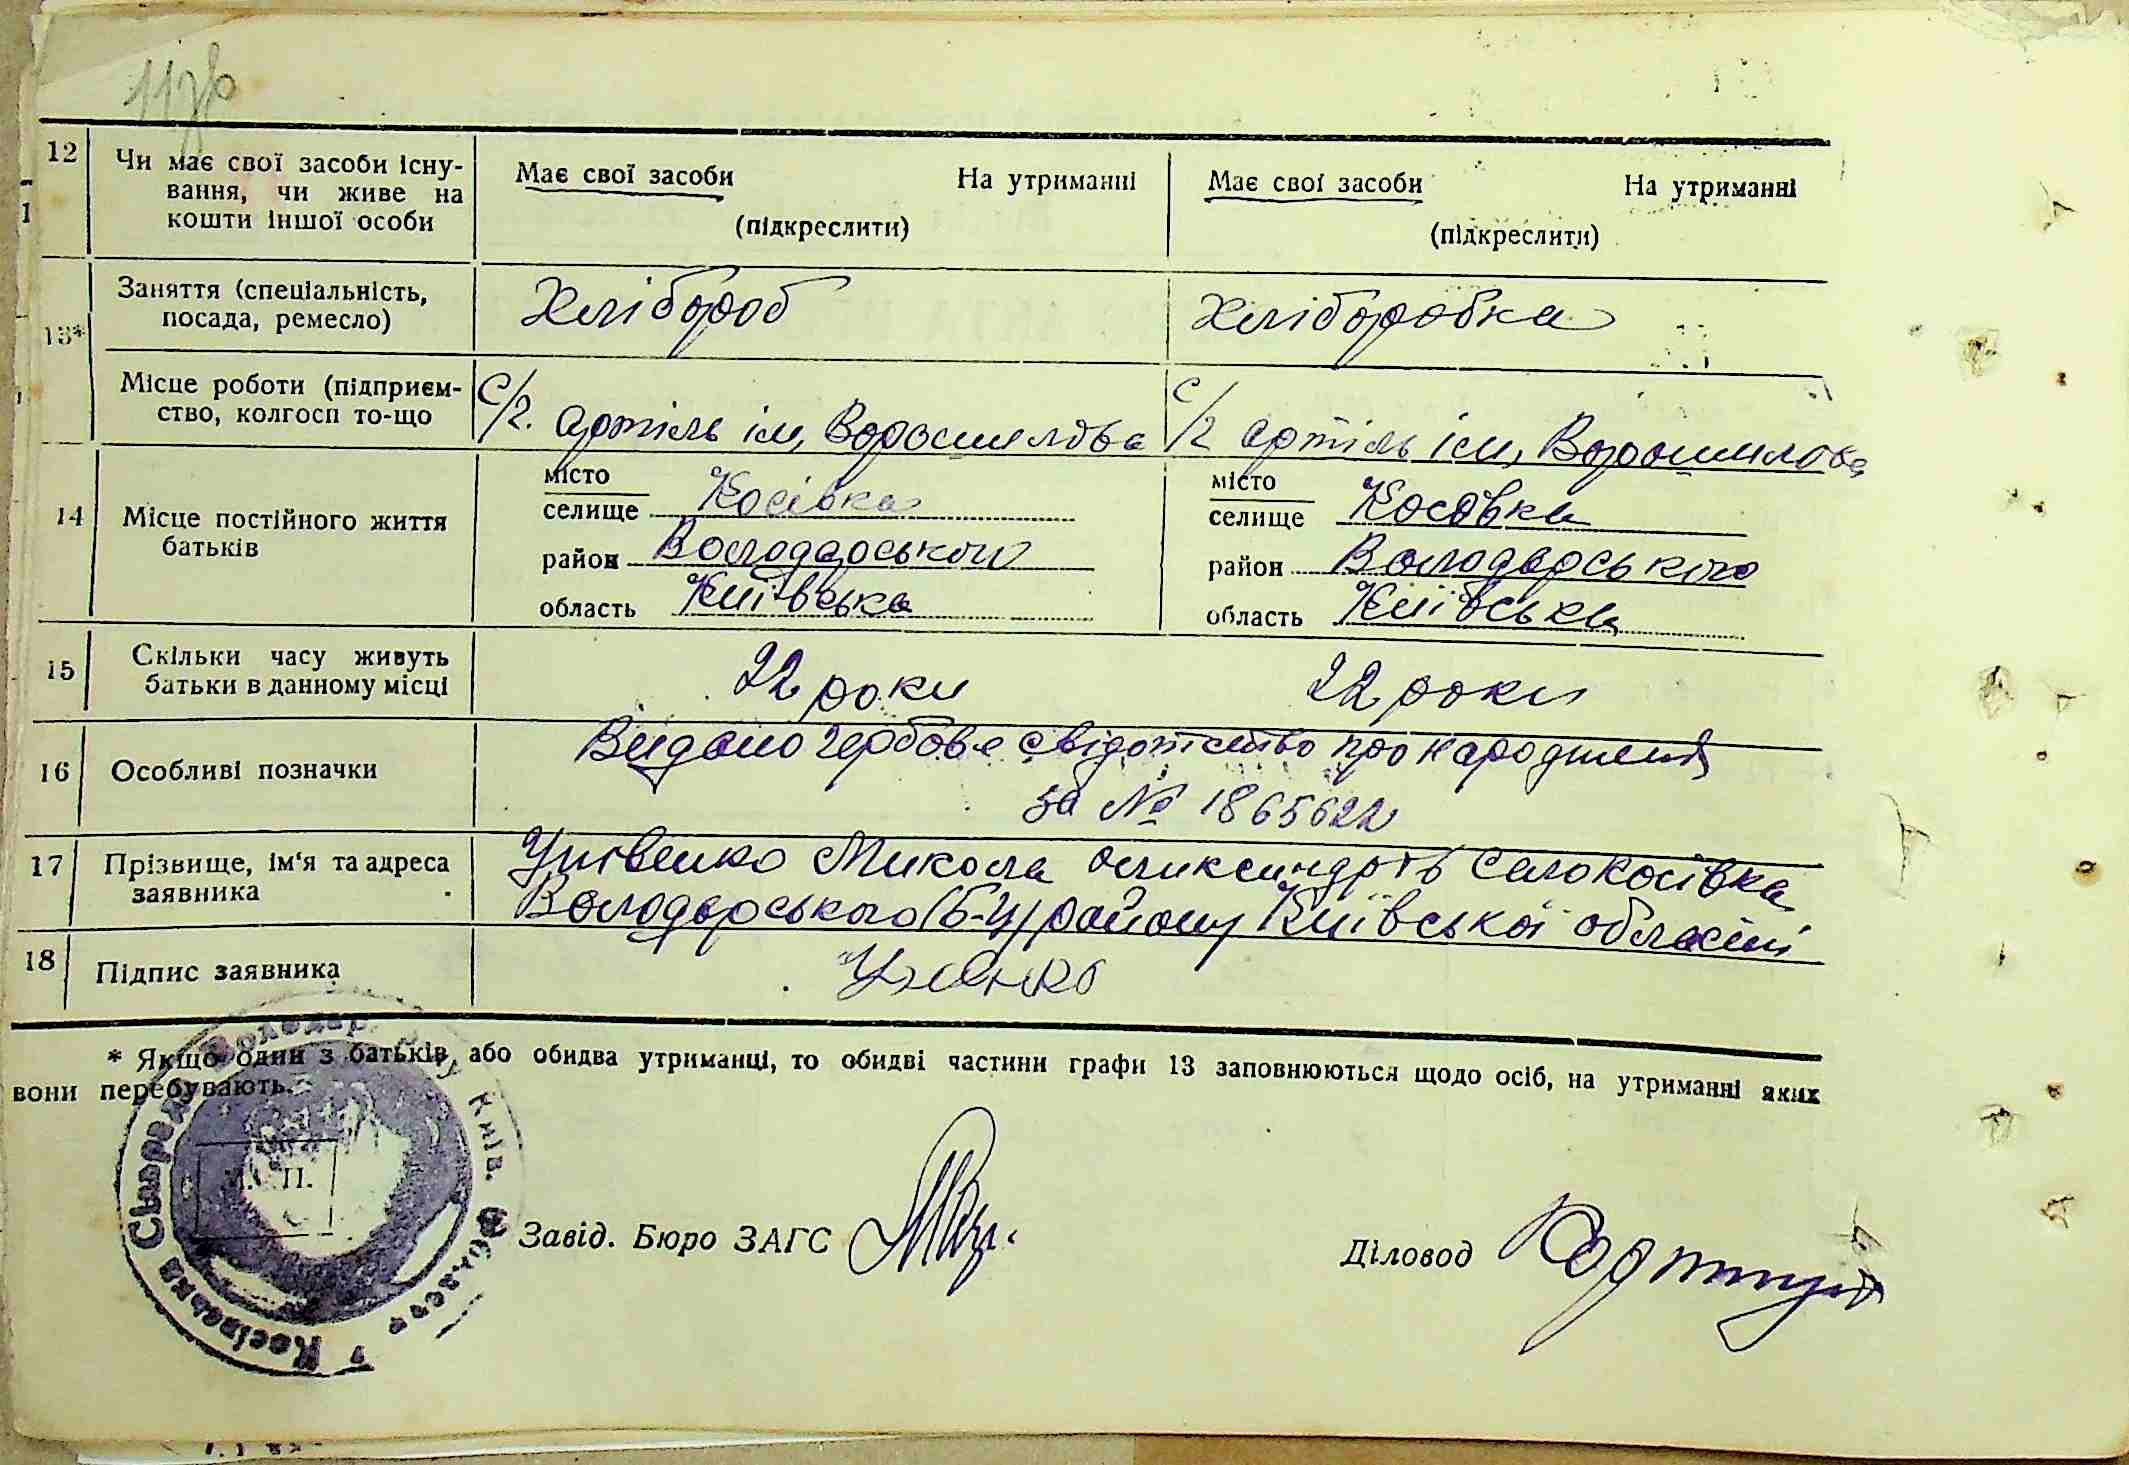 117
12
Чи має свої засоби існу-
вання, чи живе на
кошти іншої особи
Має свої засоби На утриманні
(підкреслити)
Має свої засоби На утриманні
(підкреслити)
13*
Заняття (спеціальність,
посада, ремесло)
Хлібороб
Хліборобка
Місце роботи (підприєм-
ство, колгосп то-що
с/г. артіль ім, Ворошилова
с/г артіль ім, Ворошилова
14
Місце постійного життя
батьків
місто
селище Косівка
район Володарського
область Київська
місто
селище Косівка
район Володарського
область Київська
15
Скільки часу живуть
батьки в данному місці
22 роки
22 роки
16
Особливі позначки
Видано гербове свідотство про народження
за № 1865622
17
Прізвище, ім'я та адреса
заявника
Микола село Косівка
Володарського (Б-Ц) району Київської області
18
Підпис заявника
* Якщо один з батьків, або обидва утриманці, то обидві частини графи 13 заповнюються щодо осіб, на утриманні яких
вони перебувають.
М. П.
Косівська Сільрада Володар. Київ. Области
Завід. Бюро ЗАГС
Діловод